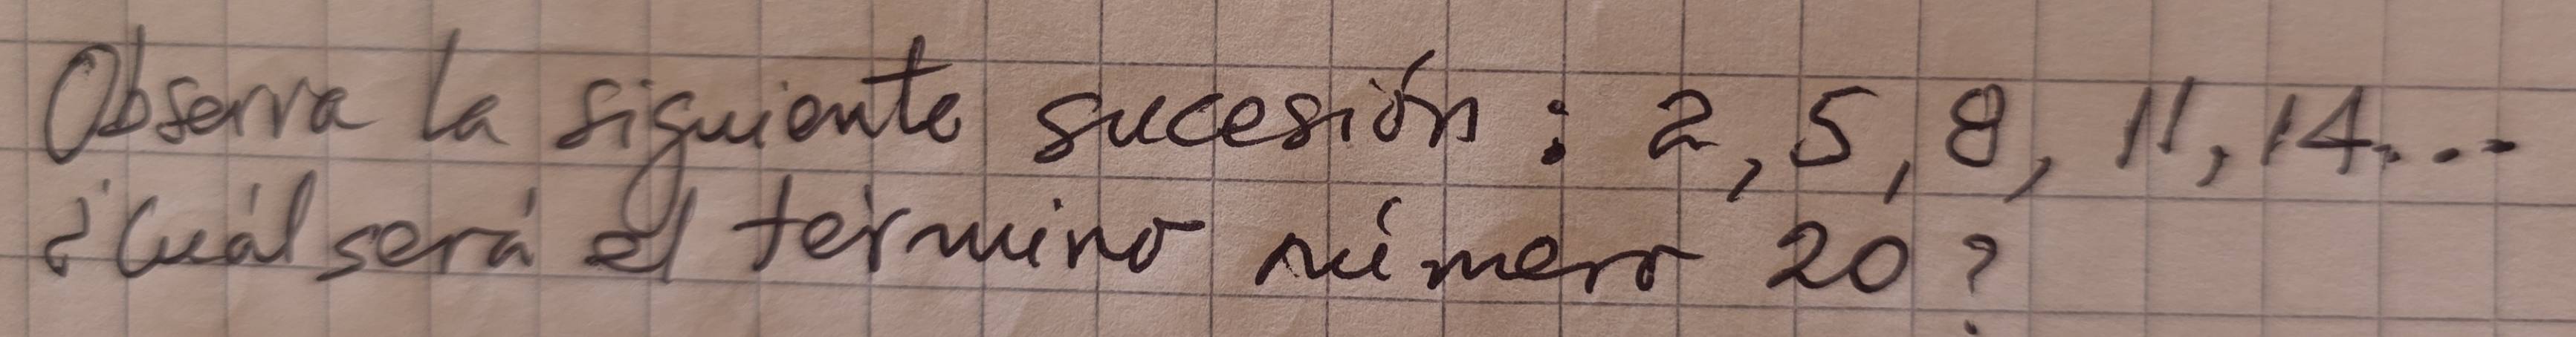 Observa la siguiente sucesión: 2, 5, 8, 11, 14...
¿Cuál será el término número 20?